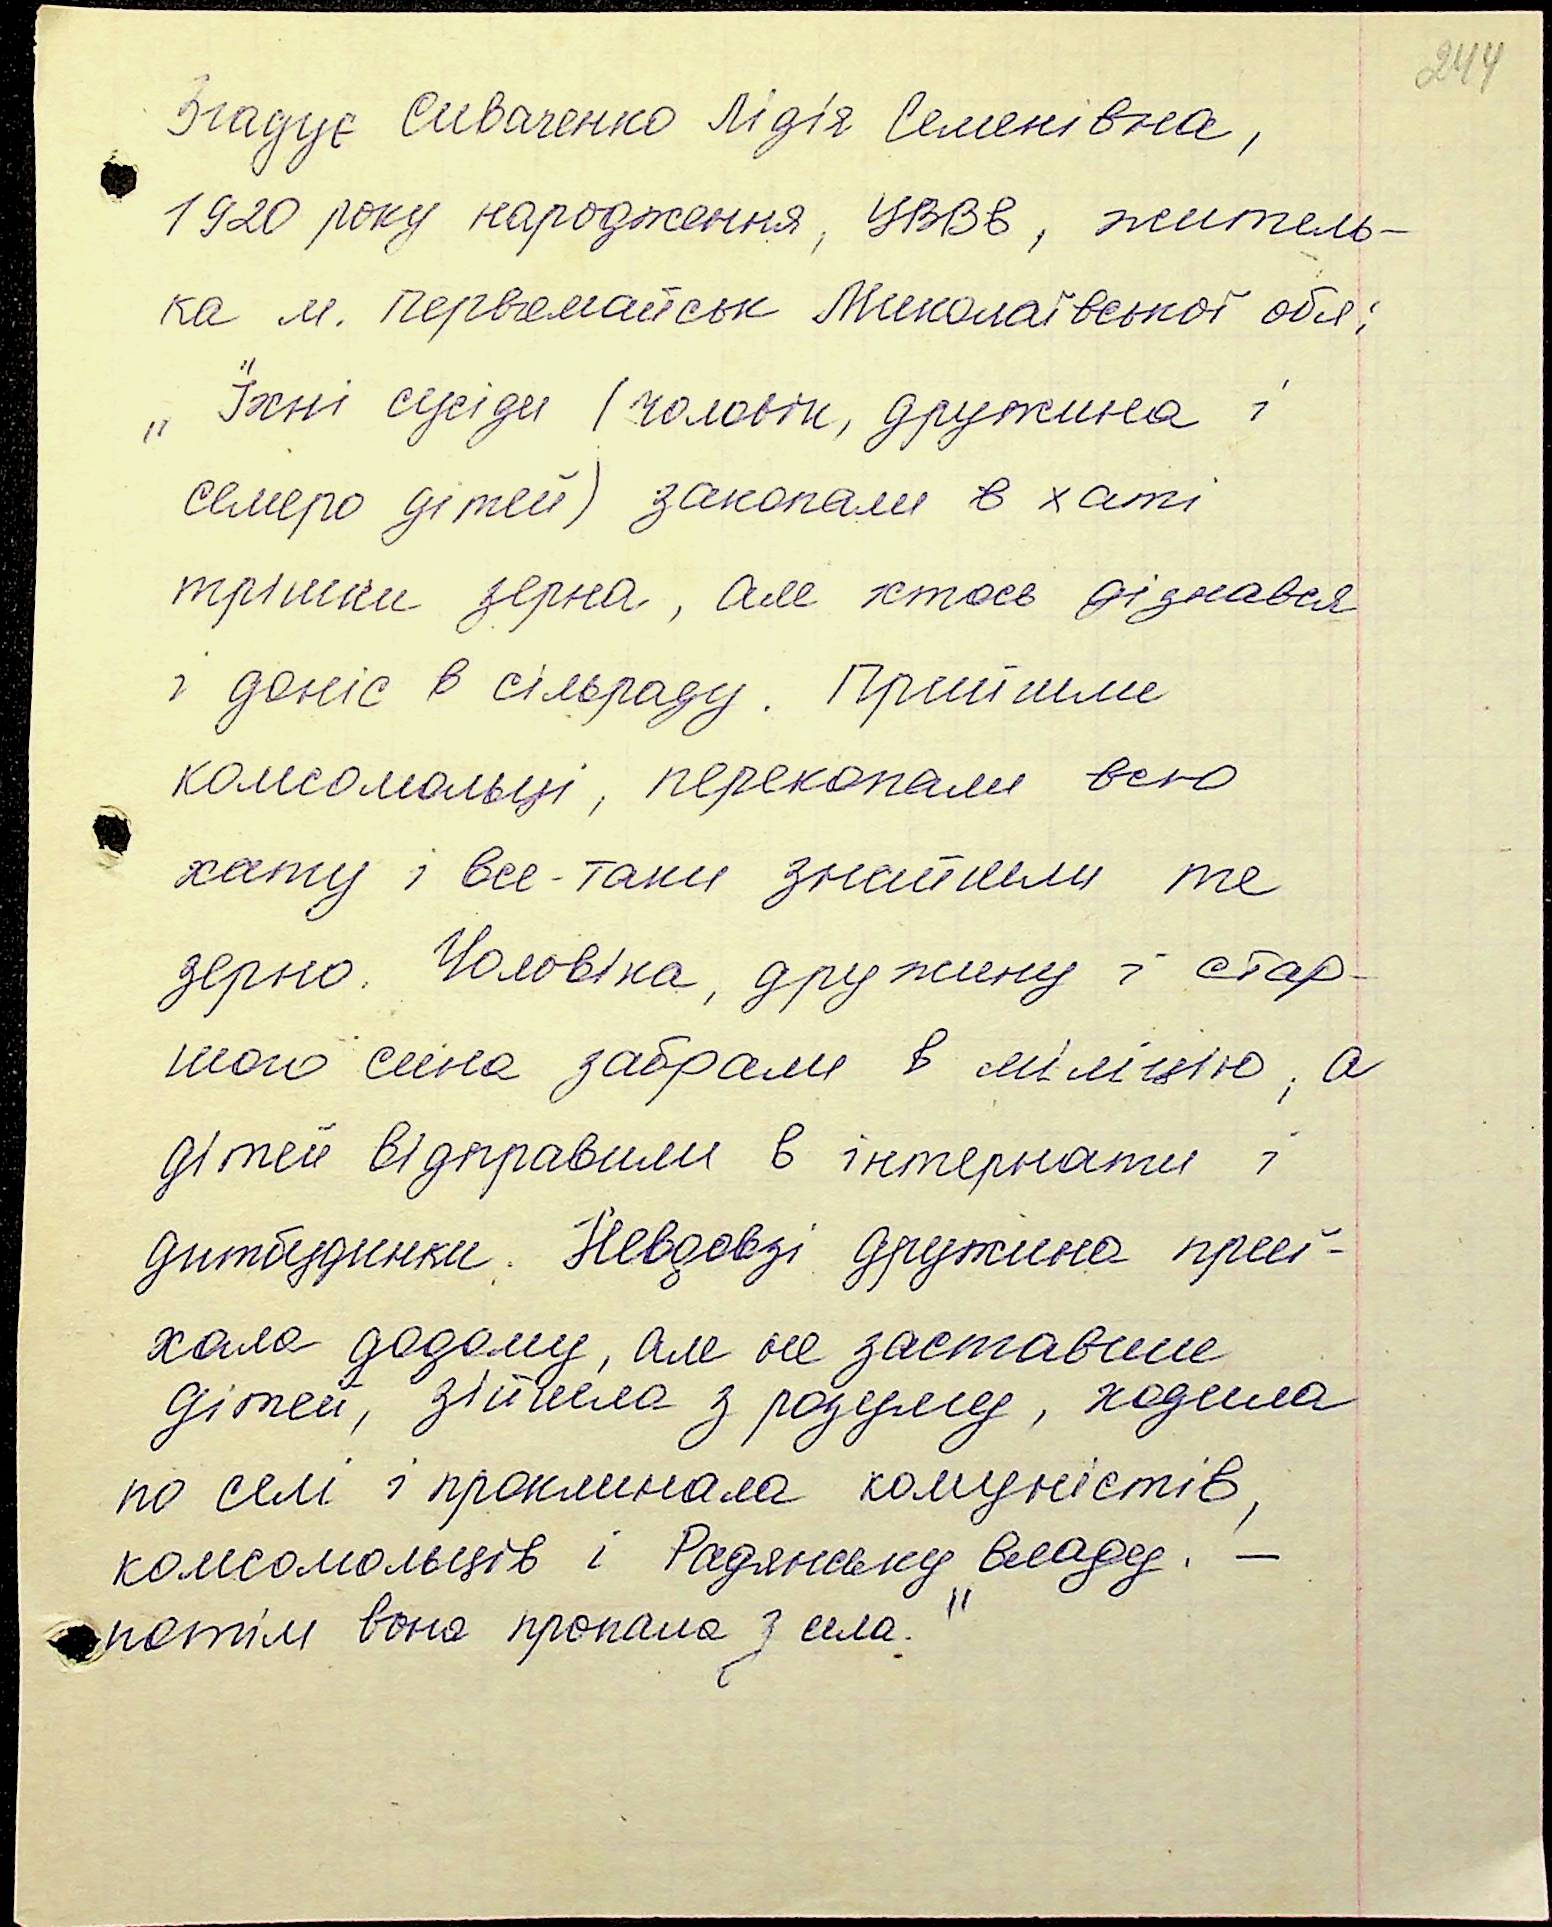 244
Згадує Сиваченко Лідія Семенівна,
1920 року народження, УВВв, житель-
ка м. Первомайськ Миколаївської обл:
„Їхні сусіди (чоловік, дружина і
семеро дітей) закопали в хаті
трішки зерна, але хтось дізнався
і доніс в сільраду. Прийшли
комсомольці, перекопали всю
хату і все-таки знайшли те
зерно. Чоловіка, дружину і стар-
шого сина забрали в міліцію, а
дітей відправили в інтернати і
дитбудинки. Невдовзі дружина приї-
хала додому, але не заставши
дітей, зійшла з розуму, ходила
по селі і проклинала комуністів,
комсомольців і Радянську владу. —
потім вона пропала з села."